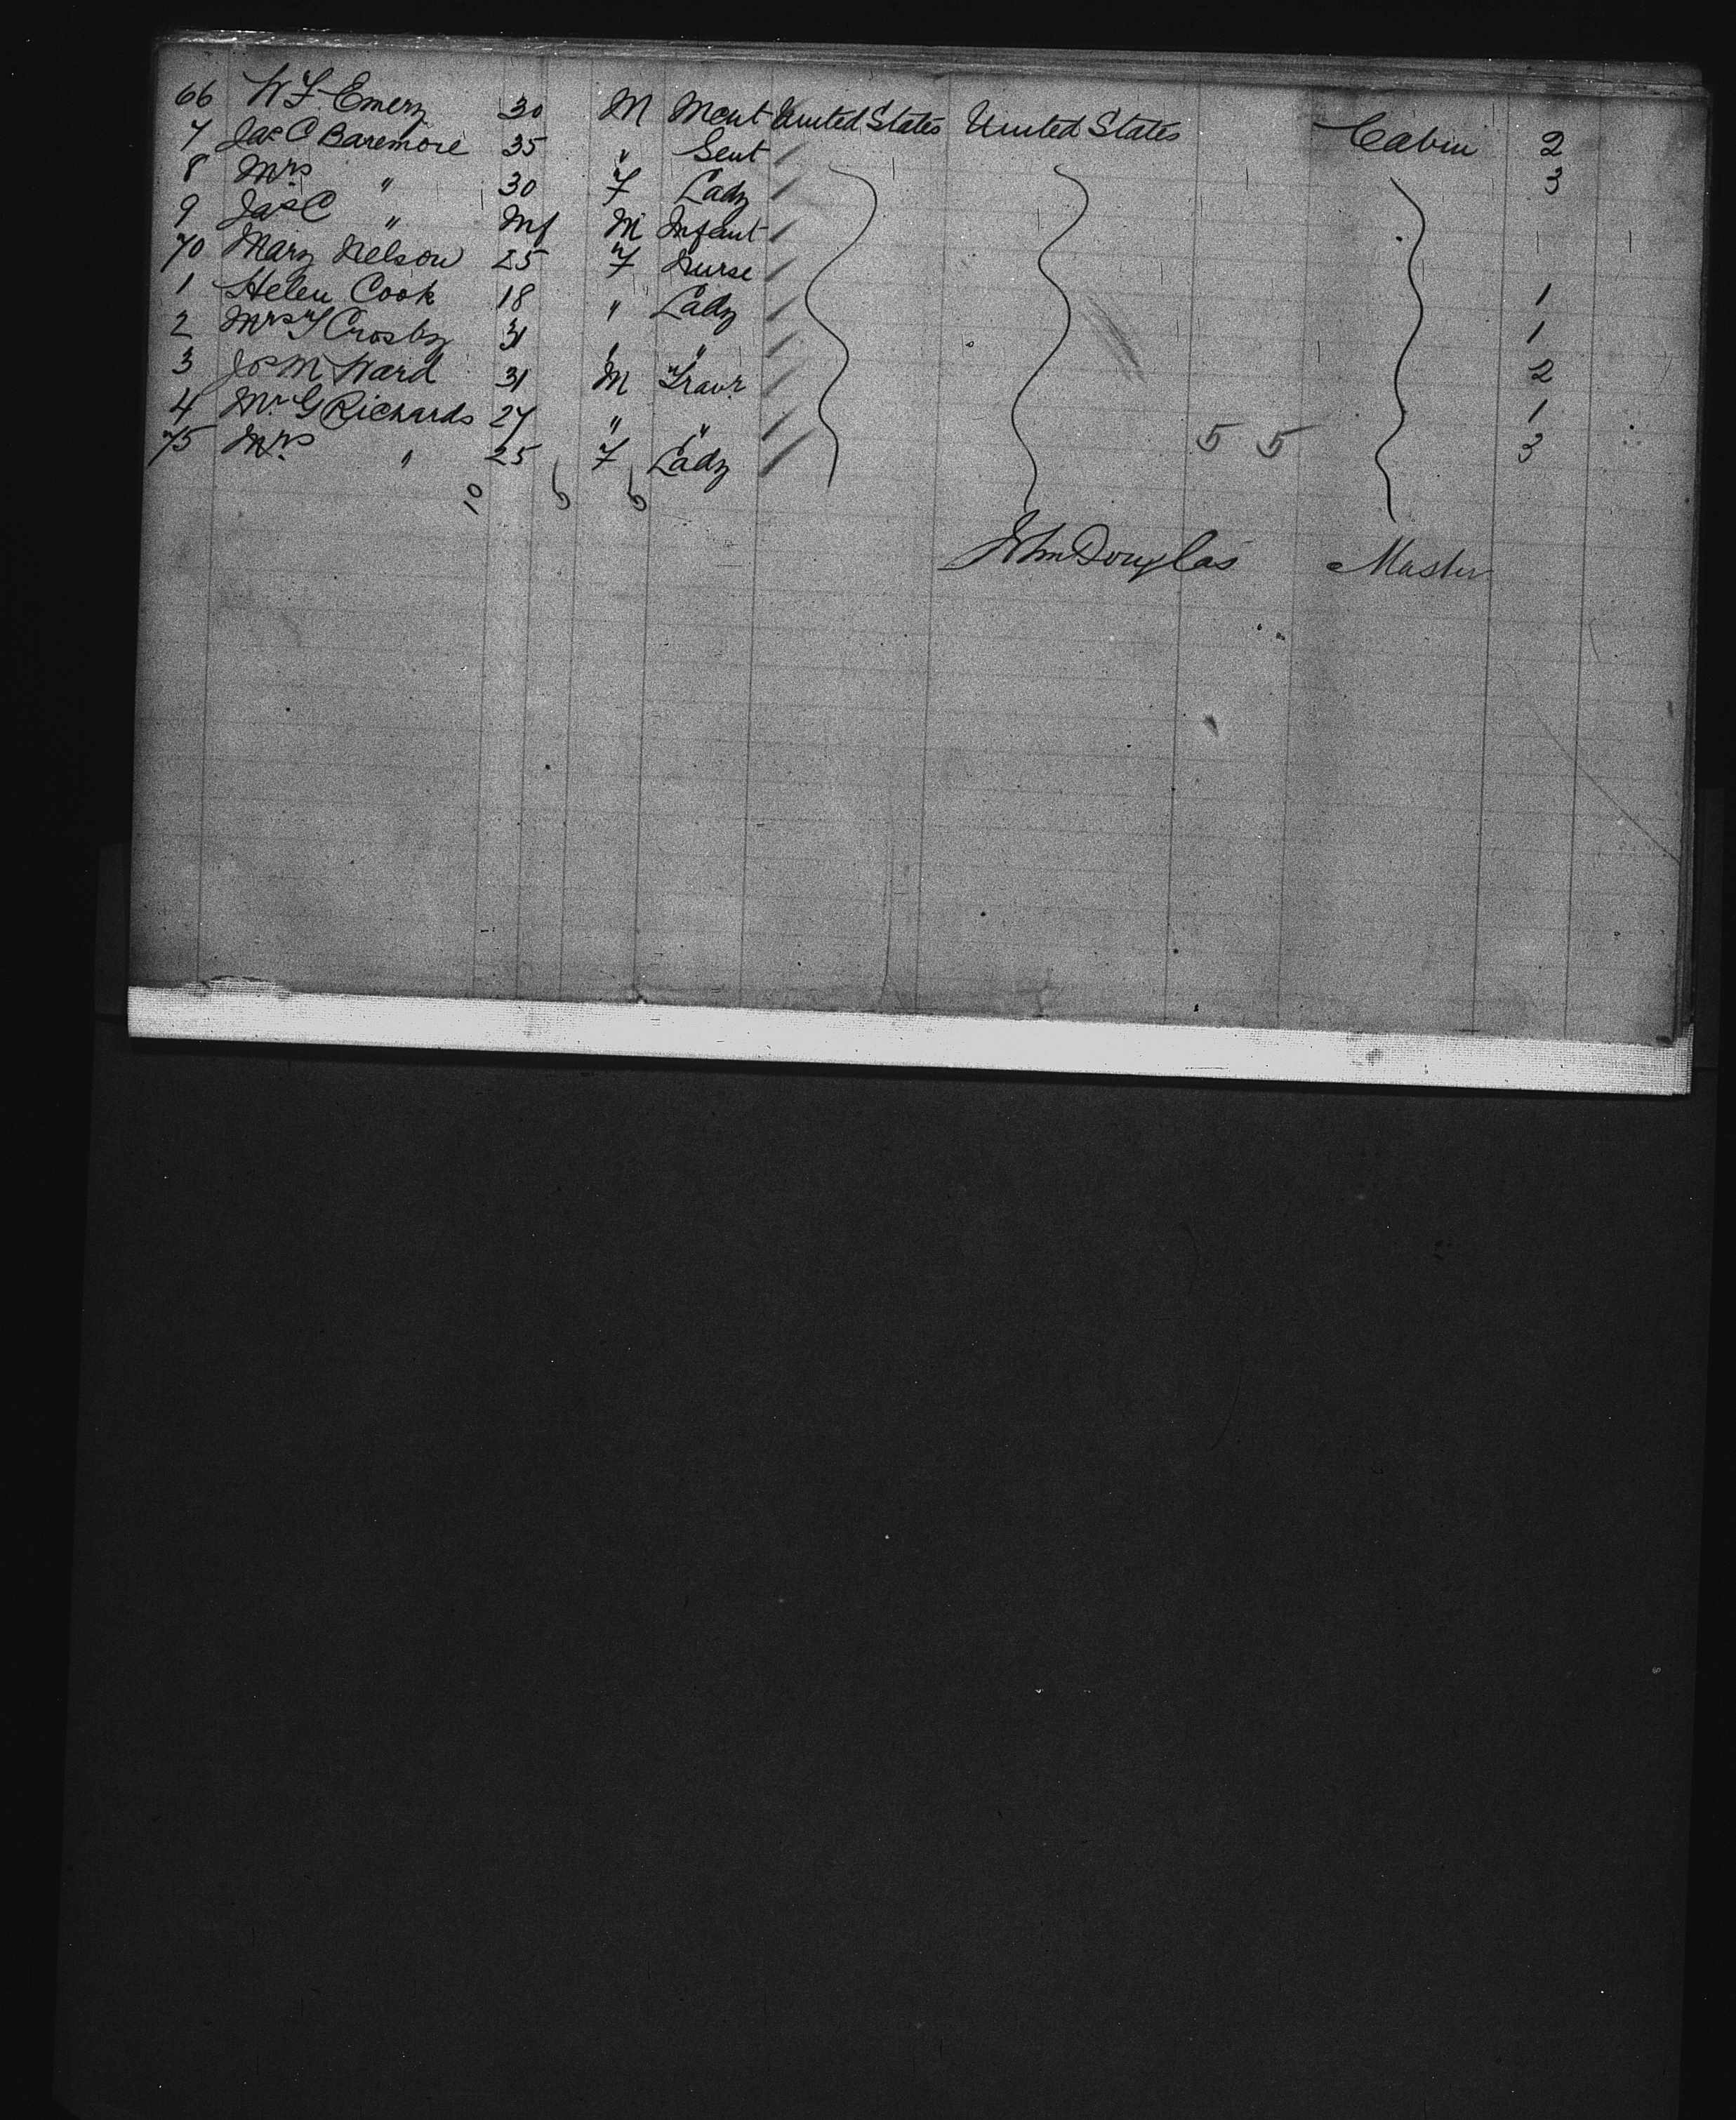 66 W F Emery 30 M Mcut United States United States Cabin 2
7 Jas C Baremore 35 " Gent 3
8 Mrs " 30 F Lady
9 Jas C " Inf M Infant
70 Mary Nelson 25 F Nurse
1 Helen Cook 18 " Lady 1
2 Mrs T Crosby 31 " " 1
3 Jos M Ward 31 M Travr 2
4 Mr G Richards 27 " " 1
75 Mrs " 25 F Lady 5 5 3
10
John Douglas Master